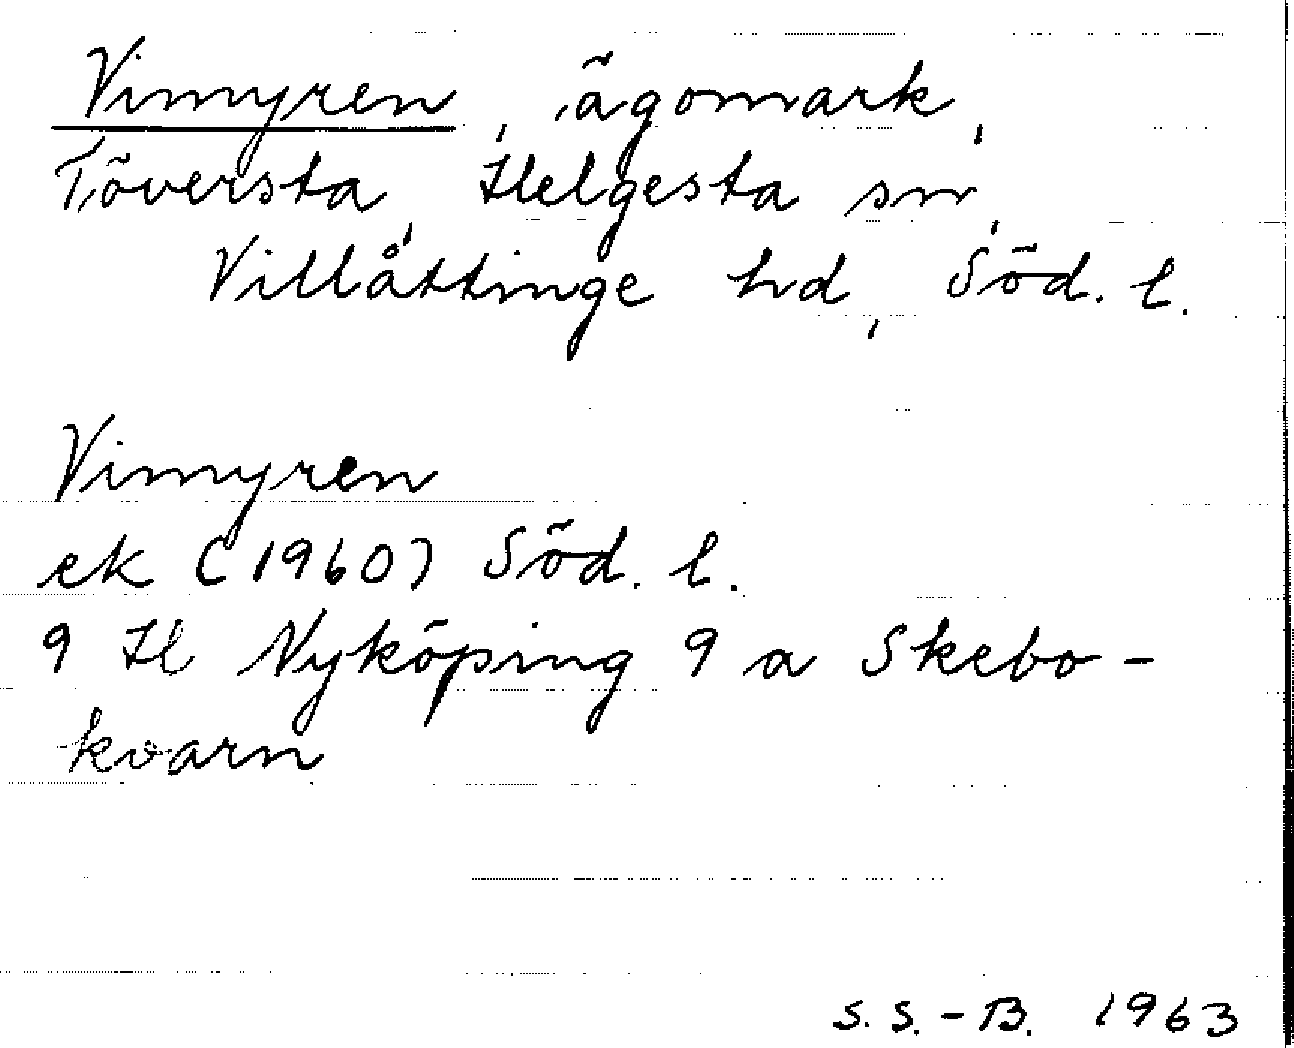 Vimyren, ägomark,
Töversta, Helgesta sn,
Villåttinge hd, Söd. l.
Vimyren
ek (1960) Söd. l.
9 H Nyköping 9 a Skebo-
kvarn
S. S.-B. 1963